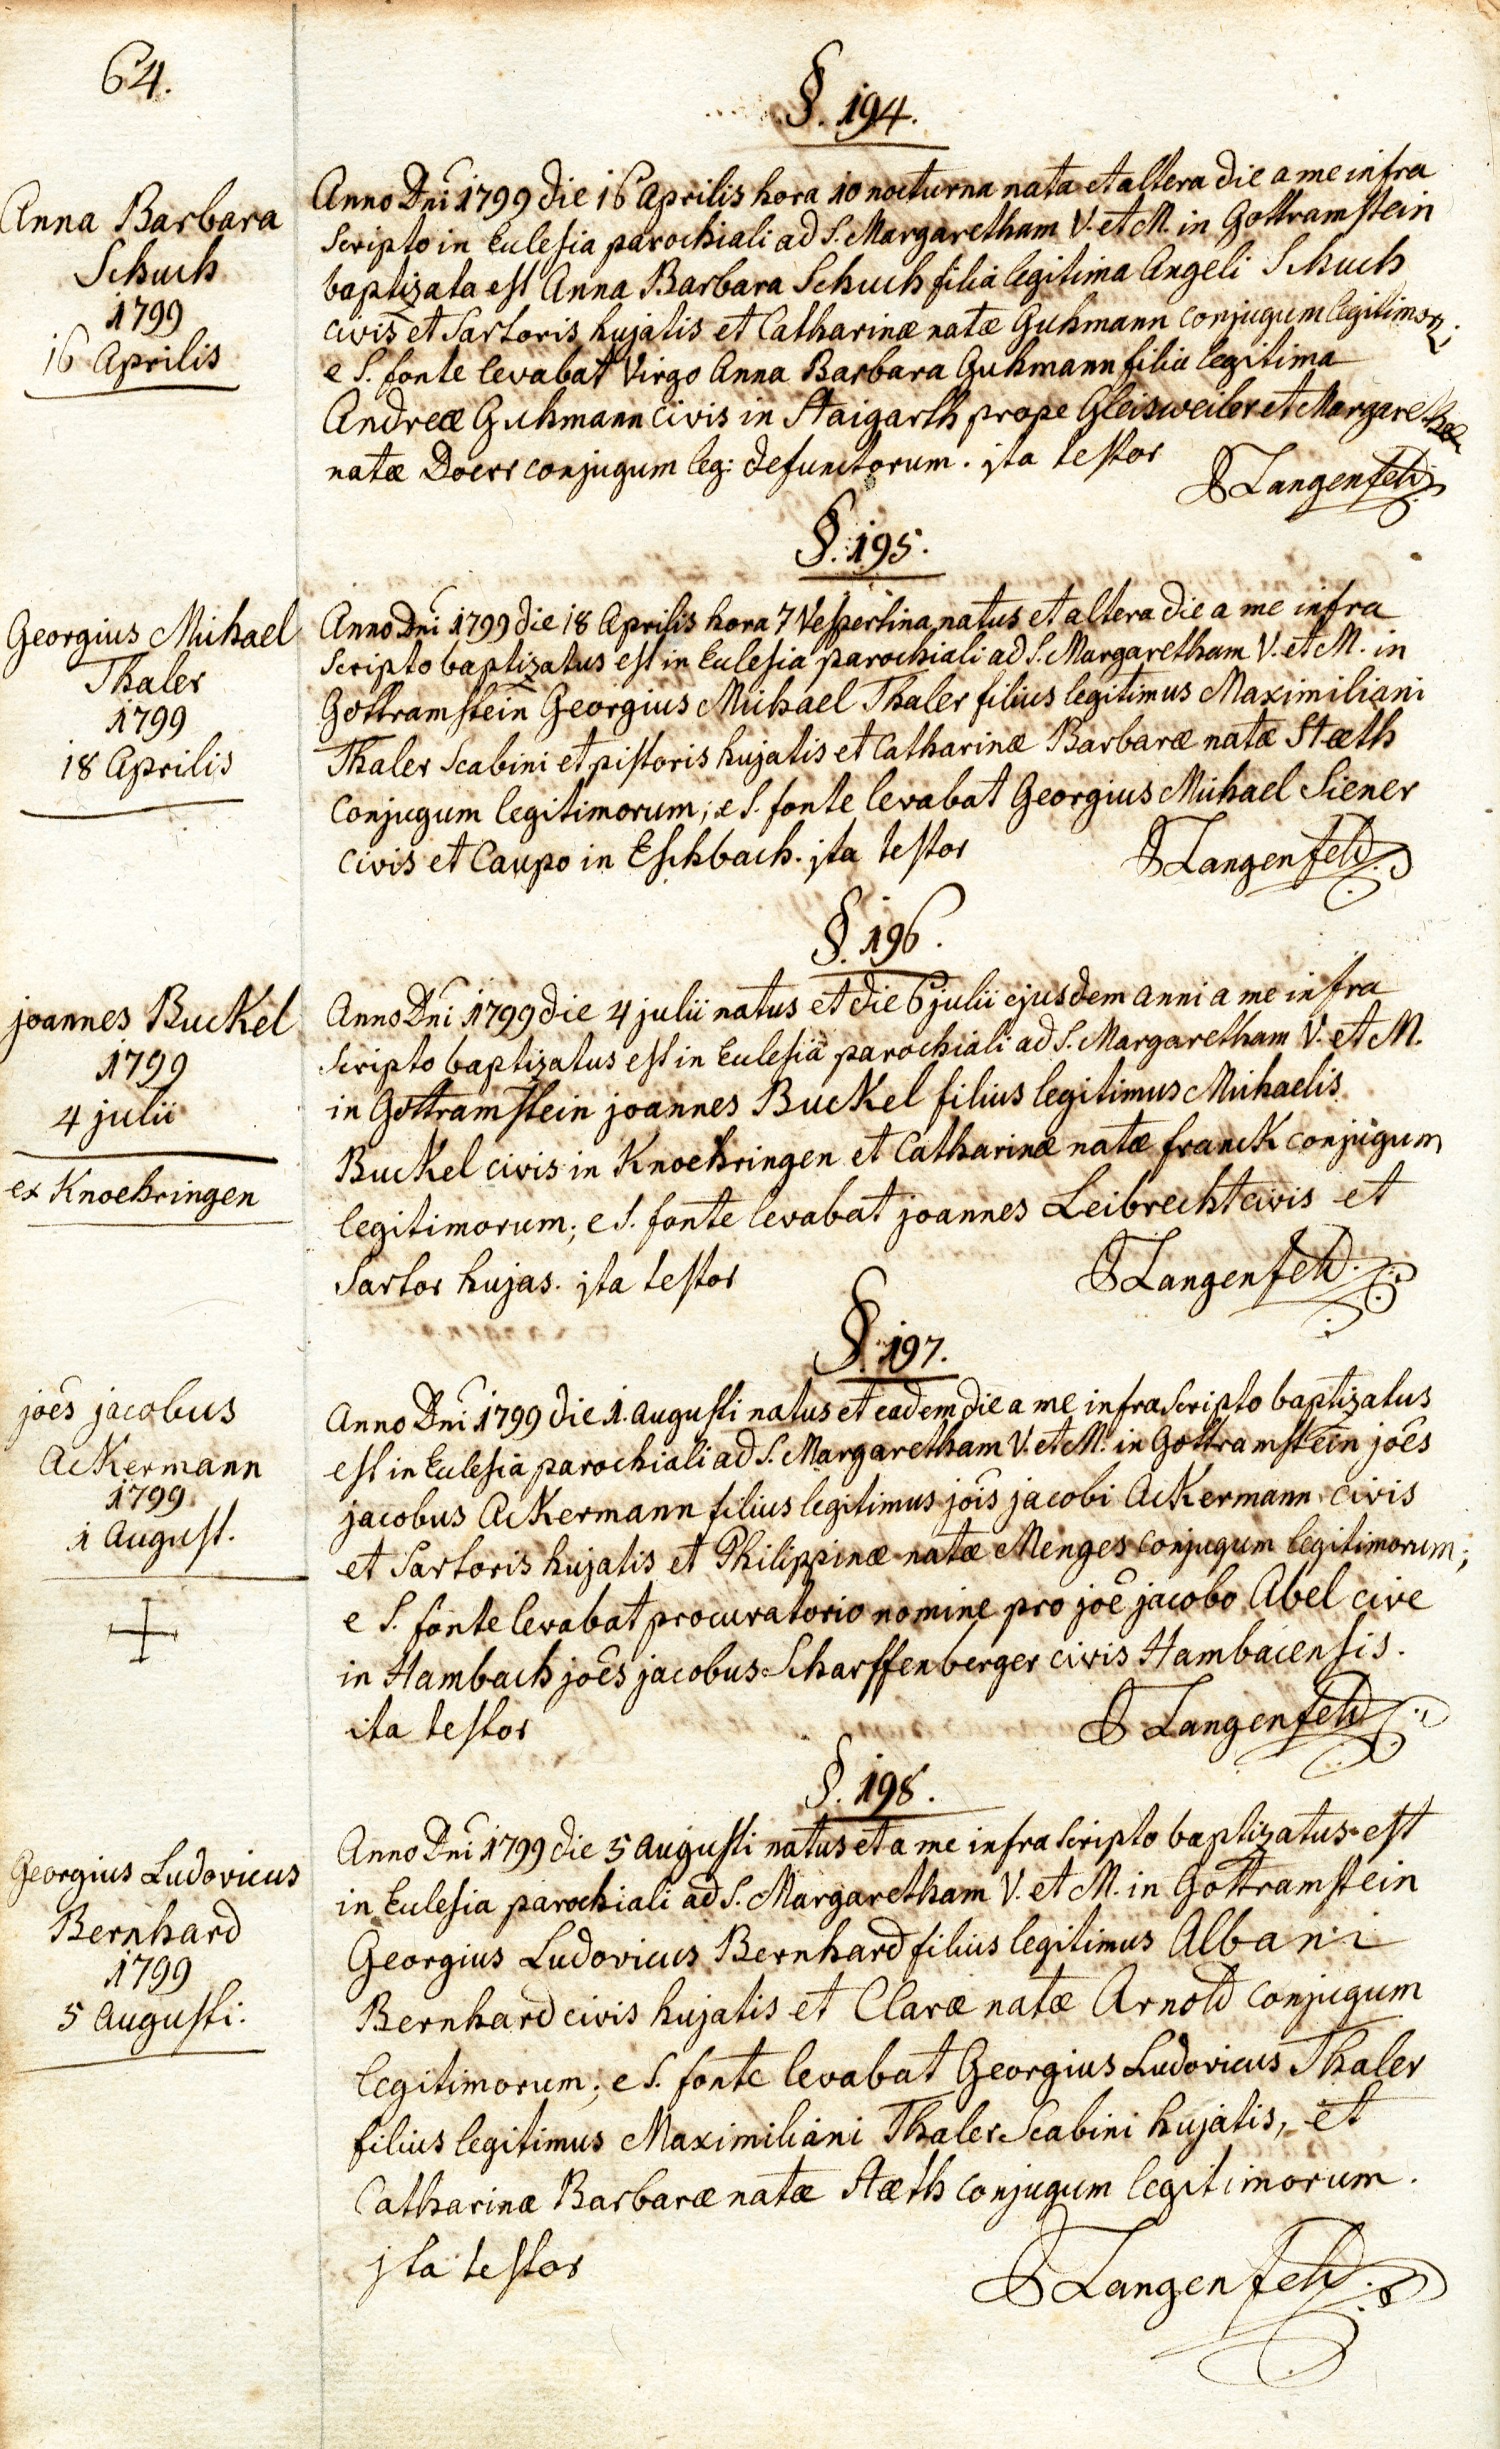 64.
§. 194.
Anna Barbara
Schuch
1799
16 Aprilis
Anno Dni 1799 die 16 Aprilis hora 10 nocturna nata et altera die a me infra
scripto in Ecclesia parochiali ad S. Margaretham V. et M. in Gottramstein
baptizata est Anna Barbara Schuch filia legitima Angeli Schuch
civis et Sartoris hujatis et Catharinæ natæ Guhmann conjugum legitimor;
e S. fonte levabat Virgo Anna Barbara Guhmann filia legitima
Andreæ Guhmann civis in Staigarth prope Gleisweiler et Margarethæ
natæ Doerr conjugum leg: defunctorum. jta testor
Langenfeld
§. 195.
Georgius Michael
Thaler
1799
18 Aprilis
Anno Dni 1799 die 18 Aprilis hora 7 Vespertina natus et altera die a me infra
scripto baptizatus est in Ecclesia parochiali ad S. Margaretham V. et M. in
Gottramstein Georgius Michael Thaler filius legitimus Maximiliani
Thaler Scabini et pistoris hujatis et Catharinæ Barbaræ natæ Stæth
conjugum legitimorum; e S. fonte levabat Georgius Michael Siener
civis et Caupo in Eschbach. jta testor
Langenfeld
§. 196.
joannes Buckel
1799
4 julii
ex Knoehringen
Anno Dni 1799 die 4 julii natus et die 6 julii ejusdem anni a me infra
scripto baptizatus est in Ecclesia parochiali ad S. Margaretham V. et M.
in Gottramstein joannes Buckel filius legitimus Michaelis
Buckel civis in Knoehringen et Catharinæ natæ franck conjugum
legitimorum; e S. fonte levabat joannes Leibrecht civis et
Sartor hujas. jta testor
Langenfeld.
§. 197.
joẽs jacobus
Ackermann
1799
1 August.
Anno Dni 1799 die 1. augusti natus et eadem die a me infra scripto baptizatus
est in Ecclesia parochiali ad S. Margaretham V. et M. in Gottramstein joẽs
jacobus Ackermann filius legitimus jois jacobi Ackermann civis
et Sartoris hujatis et Philippinæ natæ Menges conjugum legitimorum;
e S. fonte levabat procuratorio nomine pro joẽ jacobo Abel cive
in Hambach joẽs jacobus Scharffenberger civis Hambacensis.
ita testor
Langenfeld
§. 198.
Georgius Ludovicus
Bernhard
1799
5 augusti.
Anno Dni 1799 die 5 augusti natus et a me infra scripto baptizatus est
in Ecclesia parochiali ad S. Margaretham V. et M. in Gottramstein
Georgius Ludovicus Bernhard filius legitimus Albani
Bernhard civis hujatis et Claræ natæ Arnold conjugum
legitimorum; e S. fonte levabat Georgius Ludovicus Thaler
filius legitimus Maximiliani Thaler Scabini hujatis, et
Catharinæ Barbaræ natæ Stæth conjugum legitimorum.
jta testor
Langenfeld.